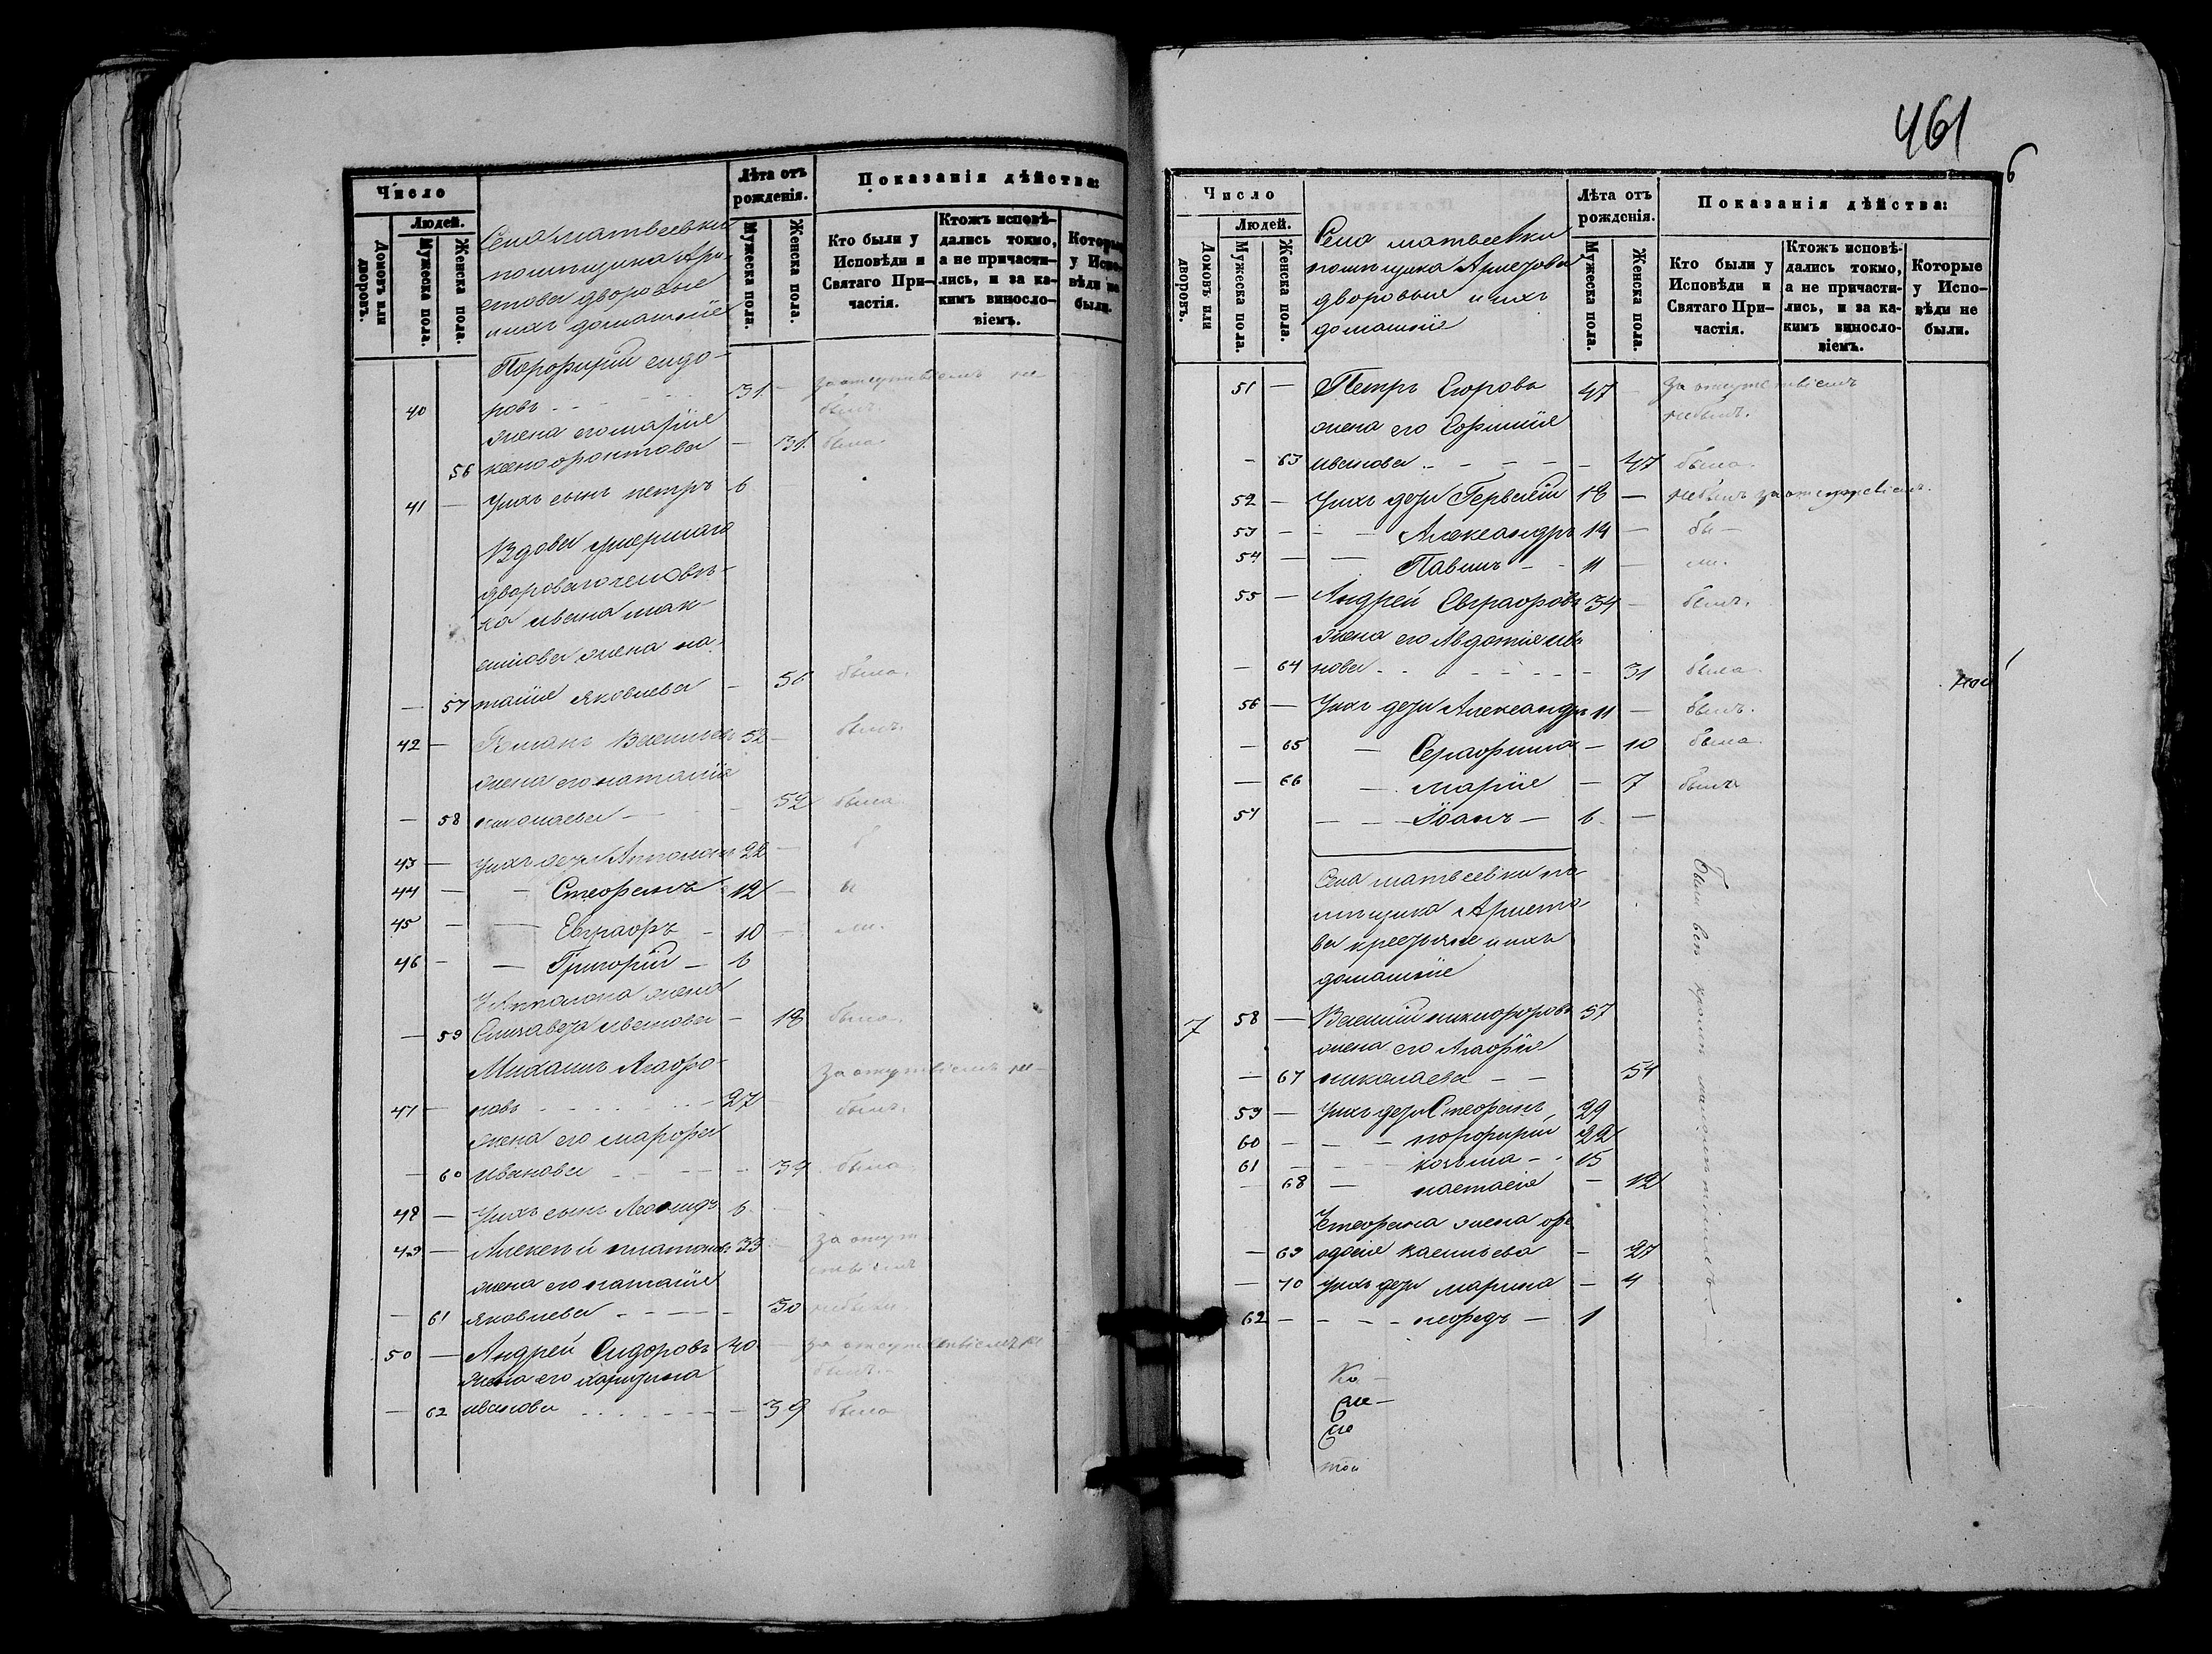 461
6
Число
Людей.
Домовъ или дворовъ.
Мужеска пола.
Женска пола.
Села матвеевки
помѣщика Ари-
стова дворовые
ихъ домашніе
Лѣта отъ рожденія.
Мужеска пола.
Женска пола.
Показанія дѣйства:
Кто были у Исповѣди и Святаго При-частія.
Ктожъ исповѣ-дались токмо, а не причасти-лись, и за ка-кимъ винословіемъ.
Которые у Испо-вѣди не были.
Порфирій сидо-
40 ровъ 31 — за отсутствіемъ не былъ.
жена его марія
56 ксенофонтова — 31 была.
41 — Ихъ сынъ петръ 6
Вдова умершаго
двороваго человѣ-
ка ивана мак-
симова жена на-
— 57 талія яковлева — 56 была.
42 — Романъ Васильевъ 52 — былъ.
жена его наталія
— 58 николаева — 52 была.
43 — Ихъ дети Апполонъ 22 —
44 — — Стефанъ 12 — ы
45 — — Евграфъ — 10 — ли.
46 — — Григорій — 6
У Апполона жена
— 59 Елизавета иванова — 18 была.
Михаилъ Агафо-
47 — новъ 27 — За отсутствіемъ не былъ.
жена его марфа
— 60 иванова — 39 была
48 — Ихъ сынъ Леонидъ 6 —
49 — Алексѣй платоновъ 33 — за отсут
жена его наталія ствіемъ
— 61 яковлева — 30 небыли
50 — Андрей Сидоровъ 40 — за отсутствіемъ не
жена его харитина былъ.
— 62 иванова — 39 была
Число
Людей.
Домовъ или дворовъ.
Мужеска пола.
Женска пола.
Села матвеевки
помѣщика Аристова
дворовые и ихъ
домашніе
Лѣта отъ рожденія.
Мужеска пола.
Женска пола.
Показанія дѣйства:
Кто были у Исповѣди и Святаго При-частія.
Ктожъ исповѣ-дались токмо, а не причасти-лись, и за ка-кимъ винословіемъ.
Которые у Испо-вѣди не были.
51 — Петръ Егоровъ 47 — За отсутствіемъ
жена его Ефимія небылъ.
— 63 иванова — 47 была.
52 — Ихъ дети Гервасій 18 — небылъ за отсутствіемъ.
53 — — Александръ 14 — бы —
54 — — Павелъ — 11 — ли.
55 — Андрей Евграфовъ 34 — былъ.
жена его Авдотія ива
— 64 нова — 31 была
56 — Ихъ дети Александръ 11 — былъ.
— 65 — Серафима — 10 была.
— 66 — марія — 7 была
57 — — Іоанъ — 6 —
Села матвеевки по-
мѣщика Аристо-
ва крестьяне и ихъ
домашніе
Были всѣ кромѣ малолѣтнихъ.
7 58 — Василій никифоровъ 57
жена его Агафія
— 67 николаева — — 54
59 — Ихъ дети Стефанъ 29
60 — — порфирій 22
61 — — козьма — 15
— 68 — настасія — 12
У стефана жена фе
— 69 одосія васильева — 27
— 70 Ихъ дети марина — 4
62 — — — нефедъ — 1